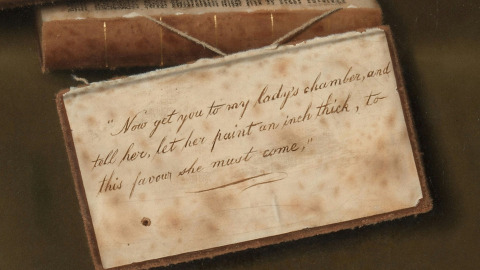 "Now get you to my lady's chamber, and
tell her, let her paint an inch thick, to
this favour she must come,"